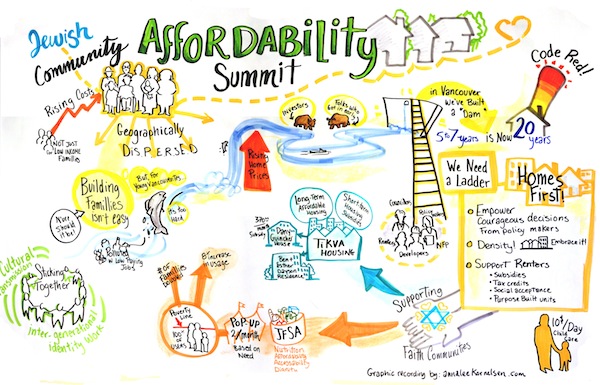 Jewish
Community
AFFORDABILITY
Summit
Rising Costs
NOT JUST
Low income
Families
Geographically
DISPERSED
Investors
Folks who
Got in early
in Vancouver
we've Built
a "Dam"
5 to 7 years is Now 20
years
Code Red!
Rising
Home
Prices
Building
Families
isn't easy
But, for
Young Vancouverites
it's too
late.
Nor
should it
be!
Polluted
w Low Paying
Jobs
Councillors
Policy
Makers
Developers
NFP
We Need
a Ladder
Homes
First!
Empower
Courageous decisions
From policy makers
Density!
Embrace it!
Support Renters
• Subsidies
• Tax credits
• Social acceptance
• Purpose Built units
Long-Term
Affordable
Housing
Short term
Housing
Subsidy
Dany
Guincher
House
Ben &
Esther
Dayson
Residence
TIKVA
HOUSING
Cultural
Sticking
Together
Inter-generational
identity work
# of
Families
↑ increase
in usage
Poverty
Line
100+
of users
Pop-up
2x/month
Based on
Need
JFSA
Nutrition
Affordability
Accessibility
Dignity
Supporting
Faith Communities
10$/Day
Child
Care
Graphic recording by: annalee Kornelsen .com